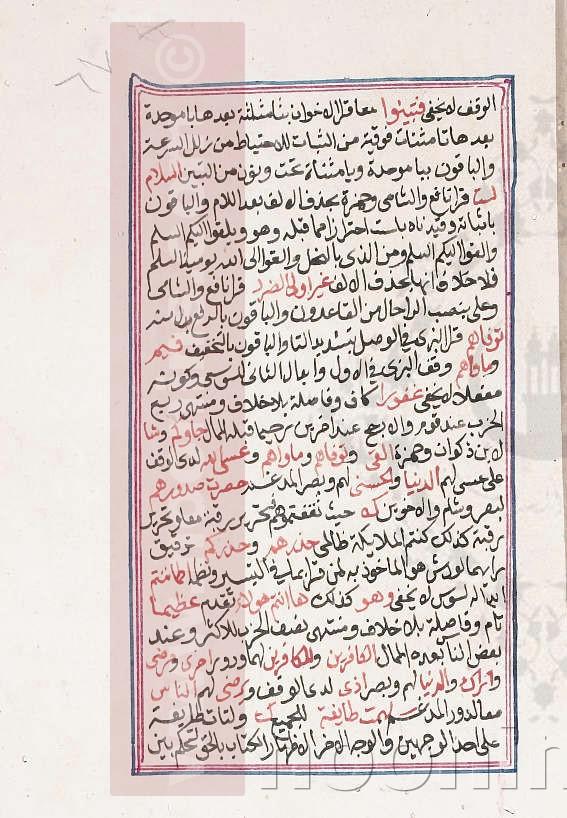 الوقف لا يخفى فتبينوا معا قرا الاخوان بثا مثلثة بعدها با موحدة
بعدها تا مثنات فوقية من الثبات للاحتياط من زلل السرعة
والباقون ببا موحدة ويا مثناة تحت ونون من التبين السلام
لست قرا نافع والشامي وحمزة بحذف الالف بعد اللام والباقون
باثباته وقيدناه بلست احترازا مما قبله وهو ويلقوا اليكم السلم
والقوا اليكم السلم ومن الذي بالنحل والقوا الى الله يومئذ السلم
فلا خلاف انها بحذف الالف غير اولي الضرر قرا نافع والشامي
وعلي بنصب الراحال من القاعدون والباقون بالرفع بدل منه
توفاهم قرا البزي في الوصل بتشديد التا والباقون بالتخفيف فيم
وماواهم وقف البزي في الاول وابدال الثاني للسوسي وكونه
مغفلا لا يخفى غفورا كاف وفاصلة بلا خلاف ومنتهى ربع
الحزب عند قوم والارجح عند اخرين رحيما قبله الممال جاوكم وشا
لابن ذكوان وحمزة القى وتوفاهم وماواهم وعسى الله لدى الوقف
على عسى لهم الدنيا والحسنى لهم وبصر المدغم حصرت صدورهم
لبصر وشام والاخوين ك حيث ثقفتموهم فتحرير رقبة معا وتحرير
رقبة كذلك كنتم الملايكة ظالمي حذرهم وحذركم ترقيق
رايهما لورش هو الماخوذ به لمن قرا بما في التيسير ونظا اطماننتم
ابداله لسوس لا يخفى وهو كذلك هاانتم هولا تقدم عظيما
تام وفاصلة بلا خلاف ومنتهى نصف الحزب للاكثر وعند
بعض الناس بعده الممال الكافرين وللكافرين لهما ودور اخرى ومرضى
واراك والدنيا لهم وبصر اذى لدى الوقف ويرضى لهم الناس
معا لدور المدغم لهمت طايفة للجميع ك ولتات طايفة
على احد الوجهين والوجه الاخر الاظهار الكتاب بالحق لتحكم بين
noorlin